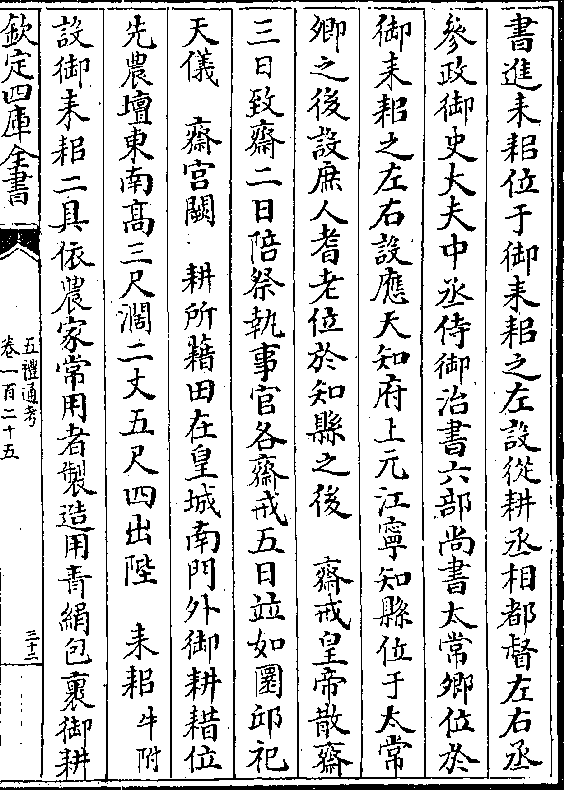 書進耒耜位于御耒耜之左設從耕丞相都督左右丞
參政御史大夫中丞侍御治書六部尚書太常卿位於
御耒耜之左右設應天知府上元江寧知縣位于太常
卿之後設庶人耆老位於知縣之後　齋戒皇帝散齋
三日致齋二日陪祭執事官各齋戒五日並如圜邱祀
天儀　齋宮闕　耕所藉田在皇城南門外御耕耤位
先農壇東南髙三尺濶二丈五尺四出陛　耒耜牛附
設御耒耜二具依農家常用者製造用青絹包裹御耕
欽定四庫全書
五禮通考
卷一百二十五
三十二